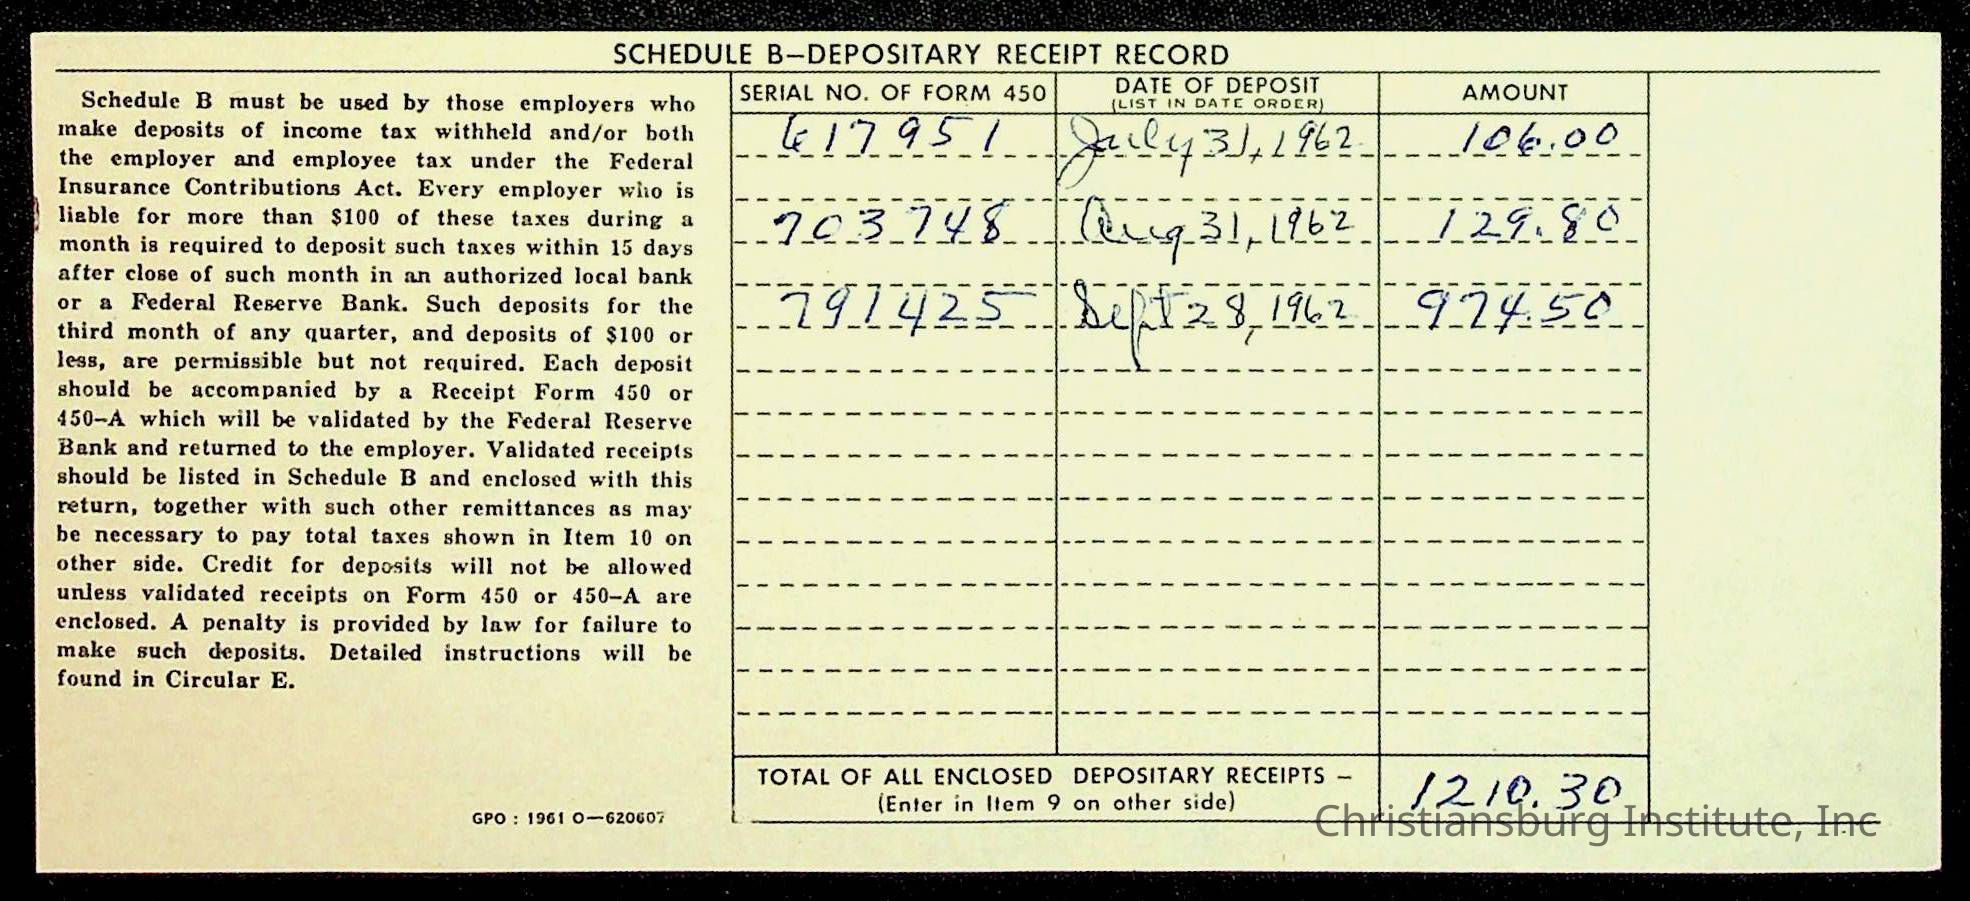 SCHEDULE B—DEPOSITARY RECEIPT RECORD
Schedule B must be used by those employers who
make deposits of income tax withheld and/or both
the employer and employee tax under the Federal
Insurance Contributions Act. Every employer who is
liable for more than $100 of these taxes during a
month is required to deposit such taxes within 15 days
after close of such month in an authorized local bank
or a Federal Reserve Bank. Such deposits for the
third month of any quarter, and deposits of $100 or
less, are permissible but not required. Each deposit
should be accompanied by a Receipt Form 450 or
450–A which will be validated by the Federal Reserve
Bank and returned to the employer. Validated receipts
should be listed in Schedule B and enclosed with this
return, together with such other remittances as may
be necessary to pay total taxes shown in Item 10 on
other side. Credit for deposits will not be allowed
unless validated receipts on Form 450 or 450–A are
enclosed. A penalty is provided by law for failure to
make such deposits. Detailed instructions will be
found in Circular E.
GPO : 1961 O—620607
SERIAL NO. OF FORM 450 DATE OF DEPOSIT AMOUNT
(LIST IN DATE ORDER)
617951 July 31, 1962 106.00
703748 Aug 31, 1962 129.80
791425 Sept 28, 1962 974.50
TOTAL OF ALL ENCLOSED DEPOSITARY RECEIPTS – 1210.30
(Enter in Item 9 on other side)
Christiansburg Institute, Inc